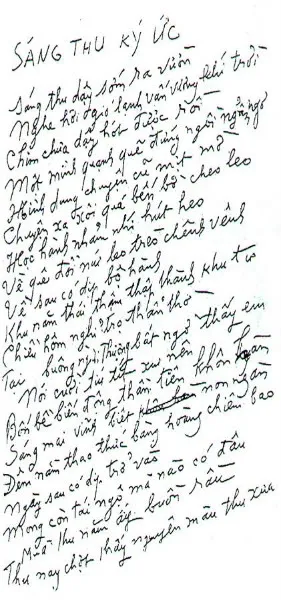 SÁNG THU KÝ ỨC
Sáng thu dậy sớm ra vườn
Nghe hơi gió lạnh vấn vương khí trời
Chim chưa dậy hót được rồi
Một mình quạnh quẽ đứng ngồi ngẩn ngơ
Hình dung chuyện cũ mịt mờ
Chuyện xa xôi quá bến bờ cheo leo
Học hành nhấm nhí hút heo
Về quê đồi núi leo trèo chênh vênh
Về sau có dịp bộ hành
Khu năm thái thậm thấy thành khu tư
Chiều hôm nghỉ trọ thẩn thơ
Tại buồng ngự Thường bất ngờ thấy em
Nói cười tíu tít xư nên
Bốn bề biển động thần tiên khôn hoàn
Sáng mai vĩnh biệt non ngàn
Đêm nằm thao thức bàng hoàng chiêm bao
Ngày sau có dịp trở vào
Mong còn tái ngộ mà nào có đâu
Mùa thu năm ấy buồn rầu
Thu nay chợt thấy nguyên màu thu xưa